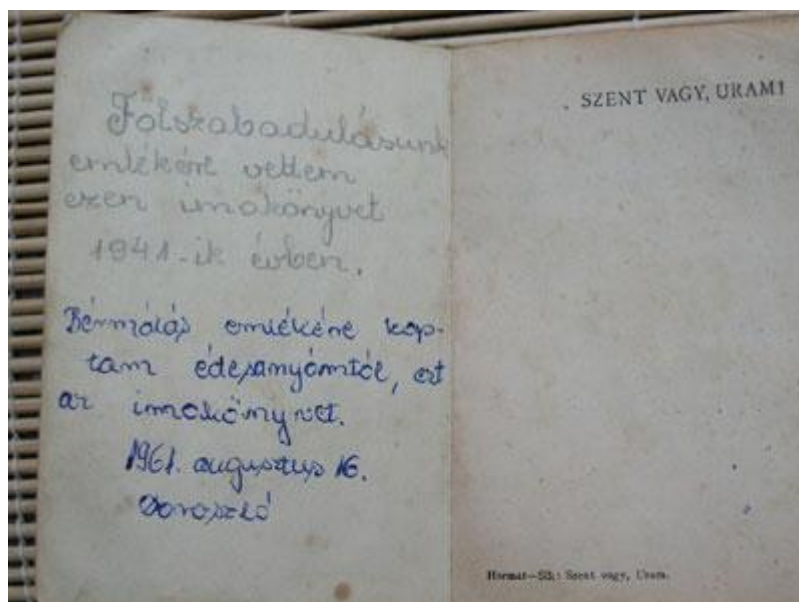 Fölszabadulásunk
emlékére vettem
ezen imakönyvet
1941-ik évben.
Bérmálás emlékére kap-
tam édesanyámtól, ezt
az imakönyvet.
1961. augusztus 16.
Doroszló
SZENT VAGY, URAM!
Harmat—Sík: Szent vagy, Uram.